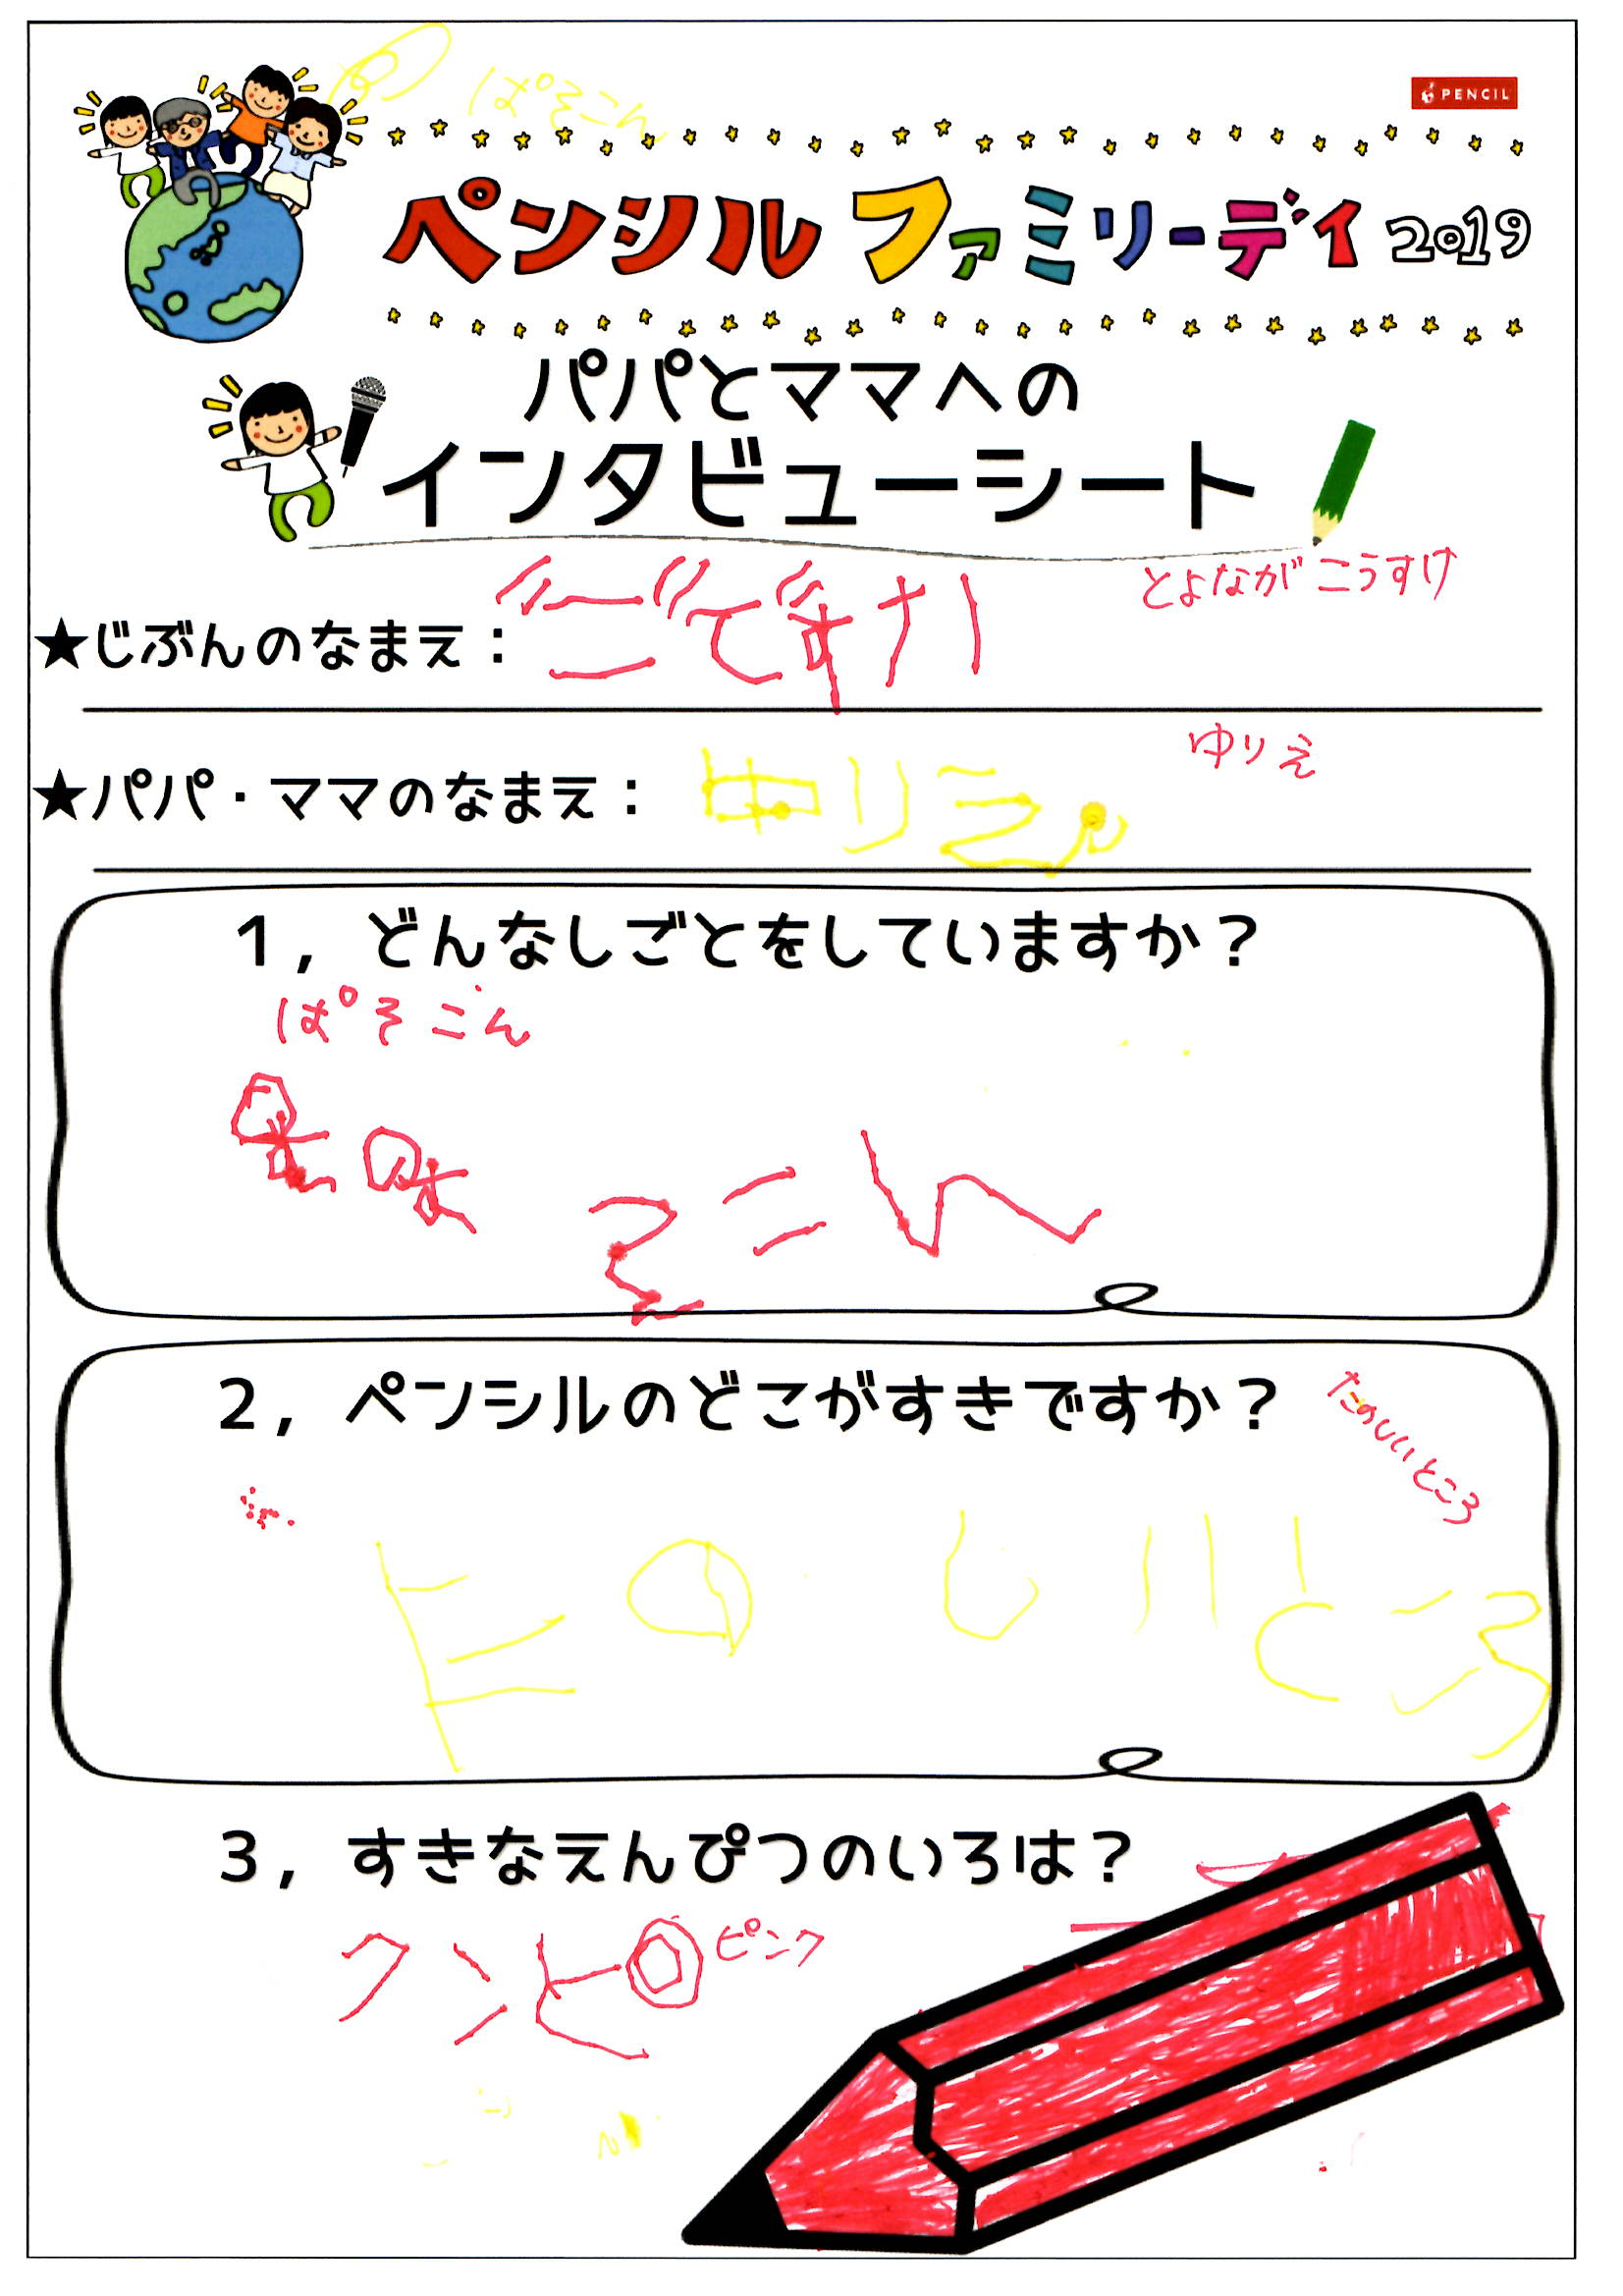 ぱそこん
PENCIL
ペンシル ファミリーデイ 2019
パパとママへの
インタビューシート
とよながこうすけ
★じぶんのなまえ：
ゆりえ
★パパ・ママのなまえ： ゆりえ
1, どんなしごとをしていますか？
ぱそこん
そこん
2, ペンシルのどこがすきですか？
たのしいところ
たのしいところ
3, すきなえんぴつのいろは？
クンピ ピンク